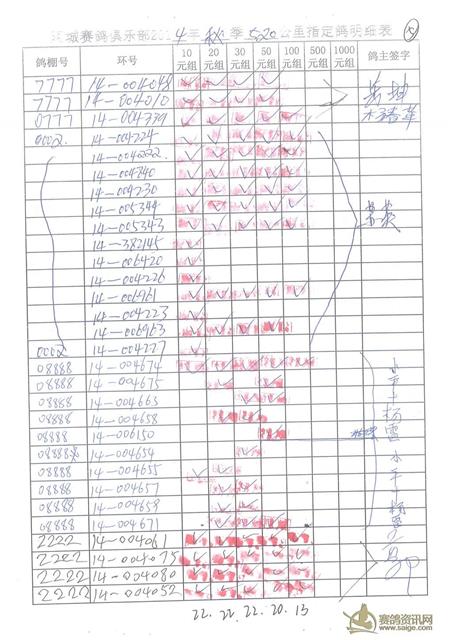 城赛鸽俱乐部2014年秋季520公里指定鸽明细表 ⑤
鸽棚号 环号 10元组 20元组 30元组 50元组 100元组 500元组 1000元组 鸽主签字
7777 14-004048
7777 14-004010
0777 14-004739
0002. 14-004224
14-004222
14-004740
14-004230
14-005344
14-005343
14-382145
14-006420
14-004226
14-006961
14-004223
14-006963
0002 14-004227
08888 14-004674
08888 14-004675
08888 14-004663
08888 14-004658
08888 14-006150
08888 14-004654
08888 14-004655
08888 14-004657
08888 14-004659
08888 14-004671
2222 14-004061
2222 14-004075
2222 14-004080
2222 14-004052
22. 22. 22. 20. 13
赛鸽资讯网
www.saige.com